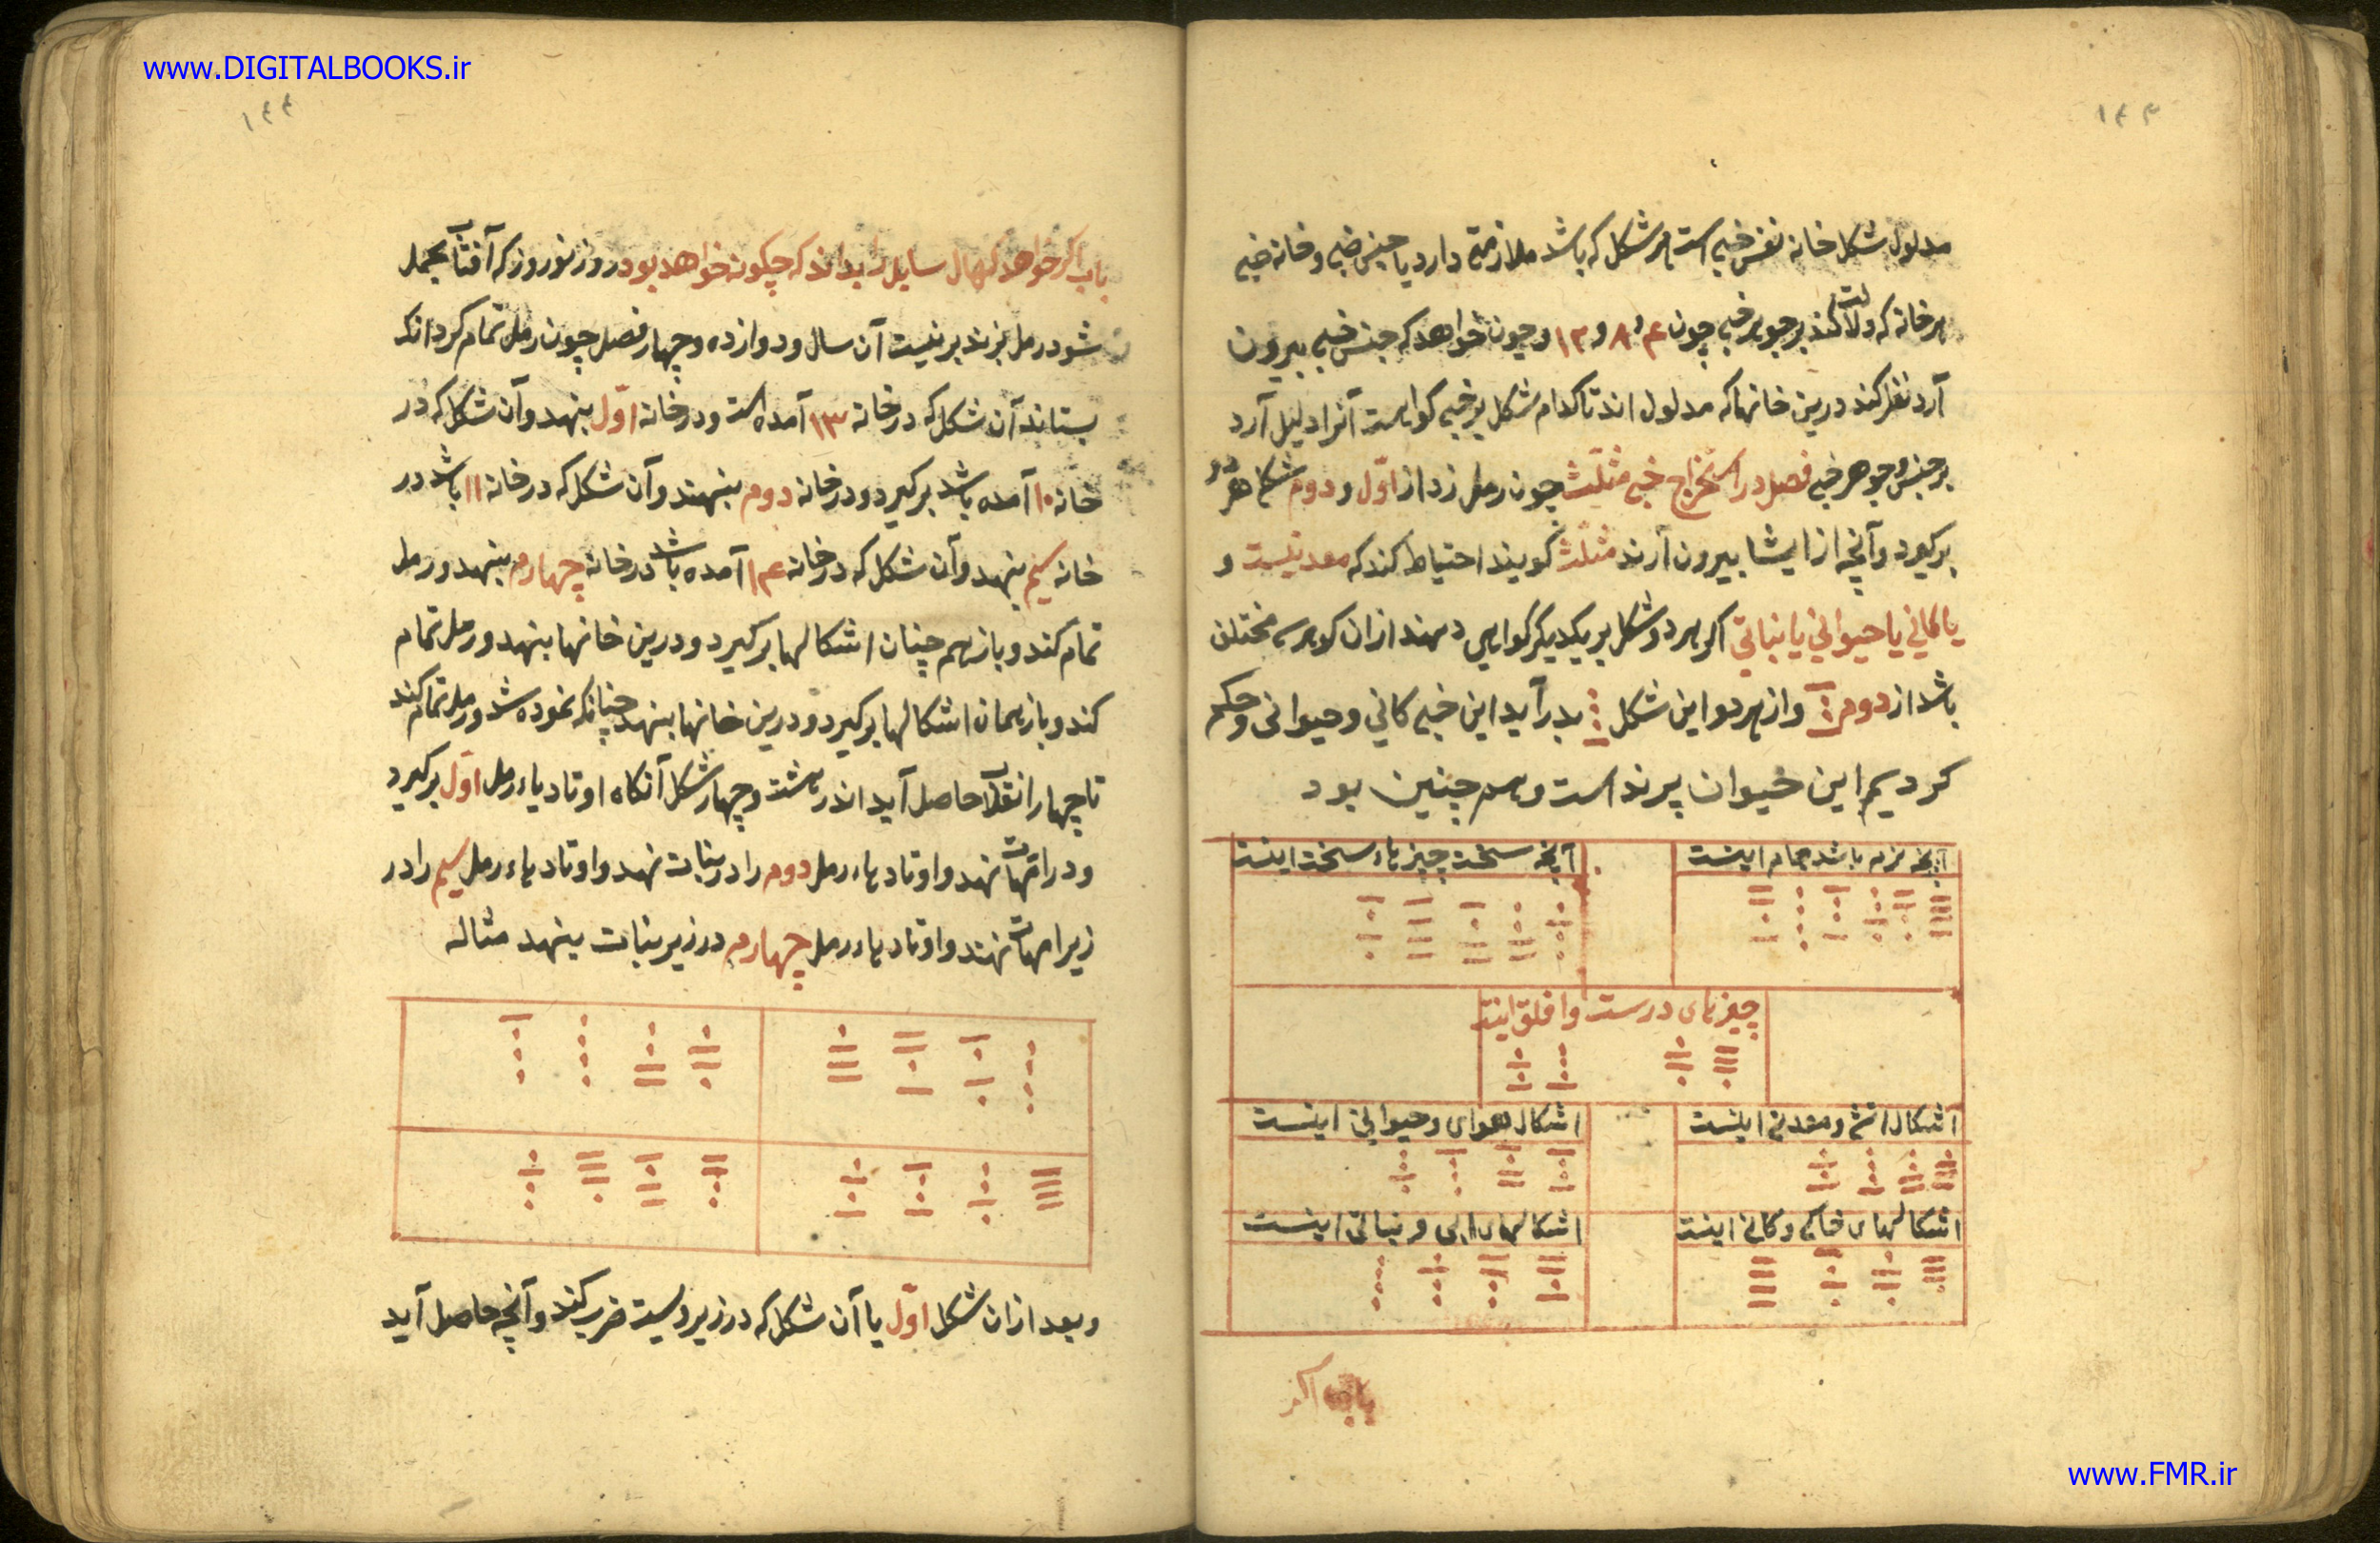 www.DIGITALBOOKS.ir
۱۴۳
مدلول شکل خانه نفس خبی است هر شکل که باشد ملازمتی دارد با جنس خبی و خانه خبی
هر خانه که دلالت کند بر جوهر خبی چون ۴ و ۸ و ۱۲ و چون خواهد که جنس خبی بیرون
آرد نظر کند درین خانها که مدلول اند تا کدام شکل بر خبی کواست آنرا دلیل آرد
بر جنس و جوهر خبی فصل در استخراج خبی مثلّث چون رمل زد از اوّل و دوم شکل هر دو
برکیرد و آنچه از ایشا بیرون آرند مثلّث کویند احتیاط کند که معدنیست و
یا کانی یا حیوانی یا نباتی اکر هر دو شکل بر یکدیکر کواهی دهند از ان کوهری مختلف
باشد از دوم و از هر دو این شکل بدر آید این خبی کانی و حیوانی و حکم
کردیم این حیوان پرند است و هم چنین بود
آنچه نرم باشد اینست
آنچه سخت چیزهاء سخت اینست
چیزهای درست اینت
اشکال اتشی و معدنی اینست
اشکال هوای و حیوانی اینست
اشکالهای خاکی و کانی اینت
اشکالهای ابی و نباتی اینست
باب اکر
۱۴۴
باب اکر خواهد که حال سایل را بداند که چکونه خواهد بود روز نوروز که آفتاب بحمل
شود رمل بزند بر نیت آن سال و دوازده و چهار فصل چون رمل تمام کرد انکه
بستاند آن شکل که در خانه ۱۳ آمده است و در خانه اوّل بنهد و آن شکل که در
خانه ۱۰ آمده باشد برکیرد و در خانه دوم بنهند و آن شکل که در خانه ۱۱ باشد در
خانه سیم بنهد و آن شکل که در خانه ۱۴ آمده باشد در خانه چهارم بنهد و رمل
تمام کند و باز هم چنان اشکالها برکیرد و درین خانها بنهد و رمل تمام
کند و باز همان اشکالها برکیرد و درین خانها بنهد چنانکه نموده شد و رمل تمام کند
تا چهار انقلاب حاصل آید اندر هشت و چهار شکل آنکاه اوتادهاء رمل اوّل برکیرد
و در امهات نهد و اوتادهاء رمل دوم را در بنات نهد و اوتادهاء رمل سیم را در
زیر امهات نهند و اوتادهاء رمل چهارم در زیر بنات بنهد مثاله
و بعد از ان شکل اوّل با آن شکل که در زیر ویست ضرب کند و آنچه حاصل آید
www.FMR.ir